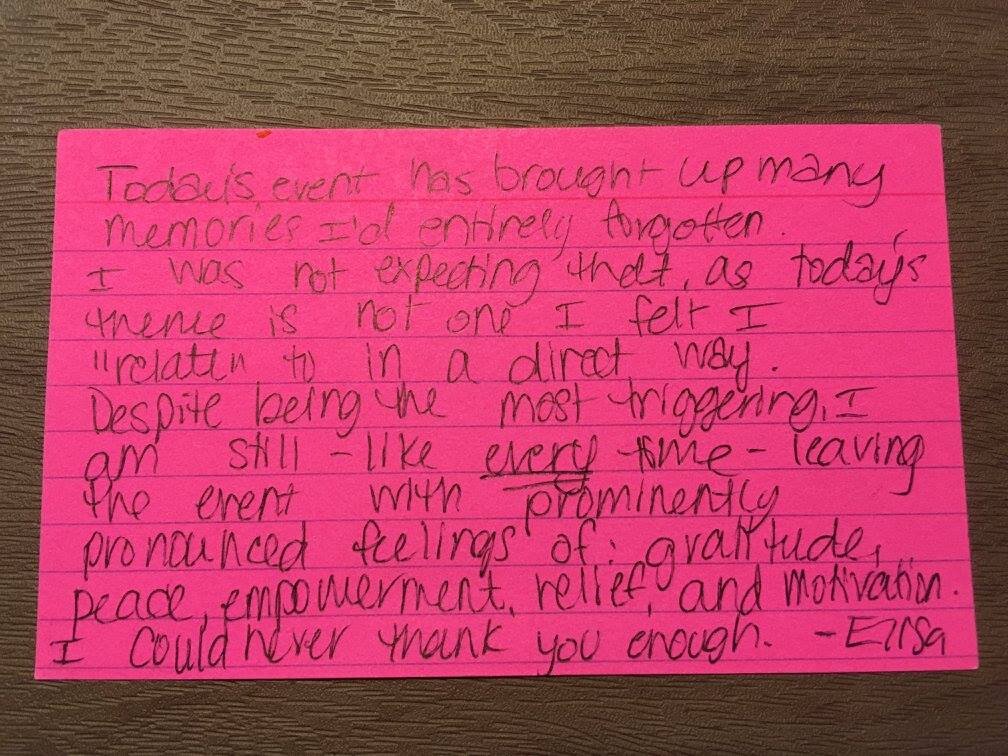 Today's event has brought up many
memories I'd entirely forgotten.
I was not expecting that, as today's
theme is not one I felt I
"relate" to in a direct way.
Despite being the most triggering, I
am still - like every time - leaving
the event with prominently
pronounced feelings of: gratitude,
peace, empowerment, relief, and motivation.
I could never thank you enough. -